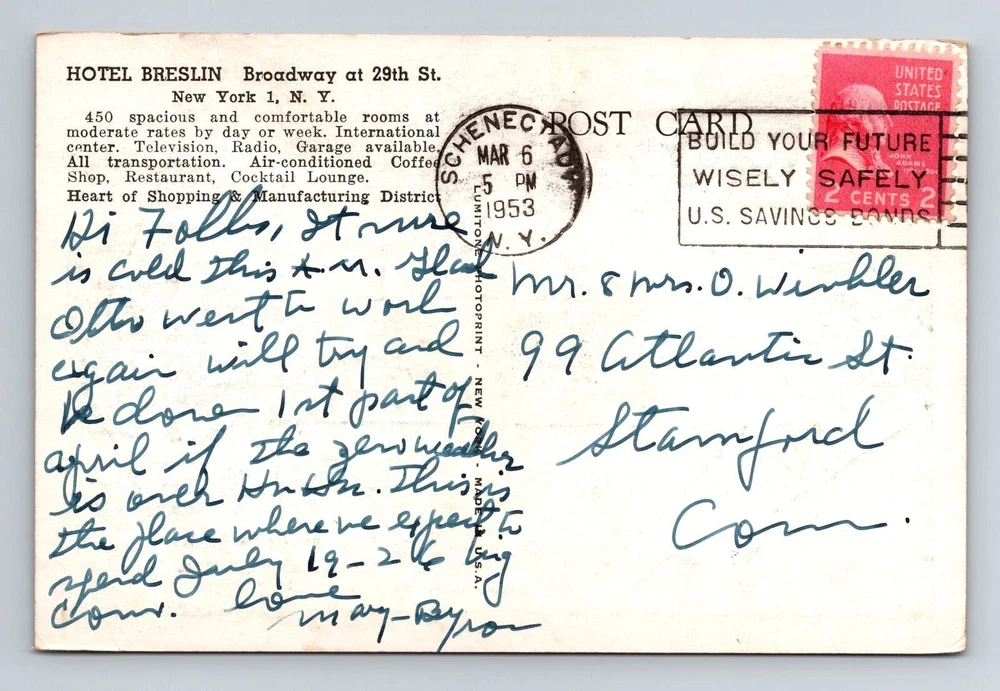 HOTEL BRESLIN Broadway at 29th St.
New York 1, N. Y.
450 spacious and comfortable rooms at
moderate rates by day or week. International
center. Television, Radio, Garage available.
All transportation. Air-conditioned Coffee
Shop, Restaurant, Cocktail Lounge.
Heart of Shopping & Manufacturing District
Hi Folks, It sure
is cold this A.M. Glad
Otto went to work
again will try and
be down 1st part of
April if the zero weather
is over Ha Ha. This is
the place where we expect to
spend July 19-26 big
Conv. Love
Mary-Byron
LUMITONE PHOTOPRINT - NEW YORK - MADE IN U.S.A.
POST CARD
SCHENECTADY
MAR 6
5 PM
1953
N. Y.
BUILD YOUR FUTURE
WISELY SAFELY
U.S. SAVINGS BONDS
UNITED
STATES
POSTAGE
JOHN
ADAMS
2 CENTS 2
Mr. & Mrs. O. Winkler
99 Atlantic St.
Stamford
Conn.